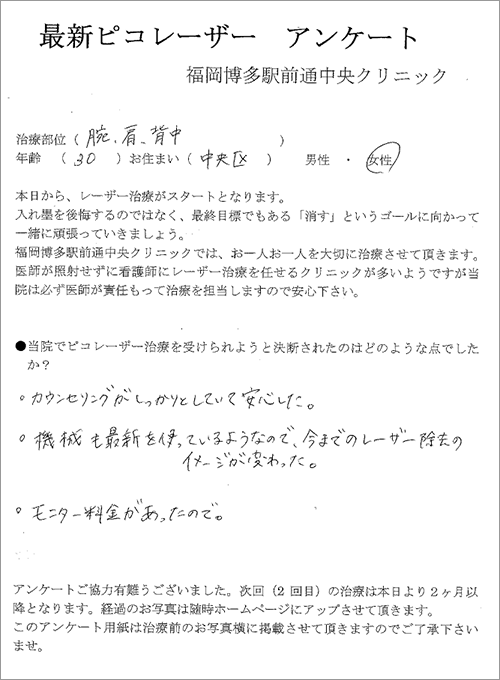 最新ピコレーザー　アンケート
福岡博多駅前通中央クリニック
治療部位（ 腕、肩、背中 ）
年齢 （ 30 ）お住まい（ 中央区 ） 男性 ・ 女性
本日から、レーザー治療がスタートとなります。
入れ墨を後悔するのではなく、最終目標でもある「消す」というゴールに向かって
一緒に頑張っていきましょう。
福岡博多駅前通中央クリニックでは、お一人お一人を大切に治療させて頂きます。
医師が照射せずに看護師にレーザー治療を任せるクリニックが多いようですが当
院は必ず医師が責任もって治療を担当しますので安心下さい。
●当院でピコレーザー治療を受けられようと決断されたのはどのような点でした
か？
。カウンセリングがしっかりとしていて安心した。
。機械も最新を使っているようなので、今までのレーザー除去の
イメージが変わった。
。モニター料金があったので。
アンケートご協力有難うございました。次回（2 回目）の治療は本日より２ヶ月以
降となります。経過のお写真は随時ホームページにアップさせて頂きます。
このアンケート用紙は治療前のお写真横に掲載させて頂きますのでご了承下さい
ませ。